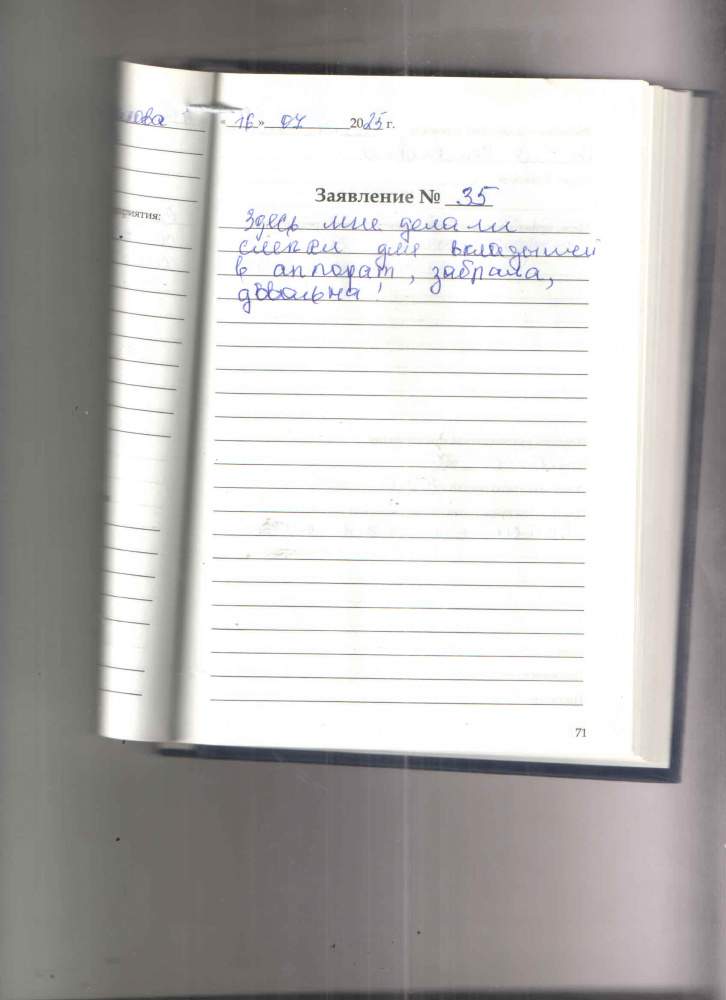 «16» 07 2025 г.
Заявление № 35
Здесь мне делали
слепки для вкладышей
в аппорат, забрала,
довольна!
приятия:
71